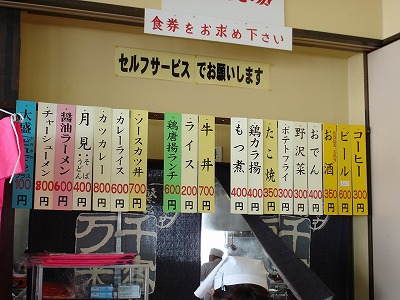 食券をお求め下さい
セルフサービス でお願いします
コーヒー 300円
ビール 600円
お酒 350円
おでん 400円
野沢菜 300円
ポテトフライ 300円
たこ焼 350円
鶏カラ揚 400円
もつ煮 400円
牛丼 700円
ライス 200円
鶏唐揚ランチ 600円
ソースカツ丼 700円
カレーライス 600円
カツカレー 800円
月見そば・うどん 400円
醤油ラーメン 600円
チャーシューメン 800円
大盛 100円